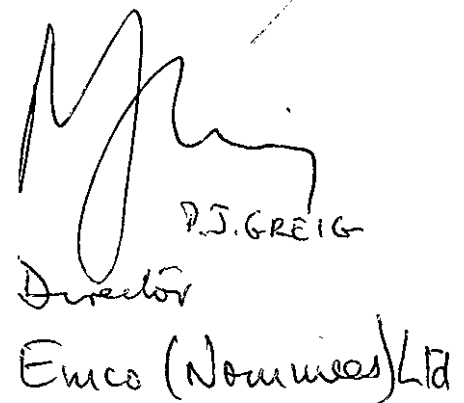 P.J. GREIG
Director
Emco (Nominees) Ltd